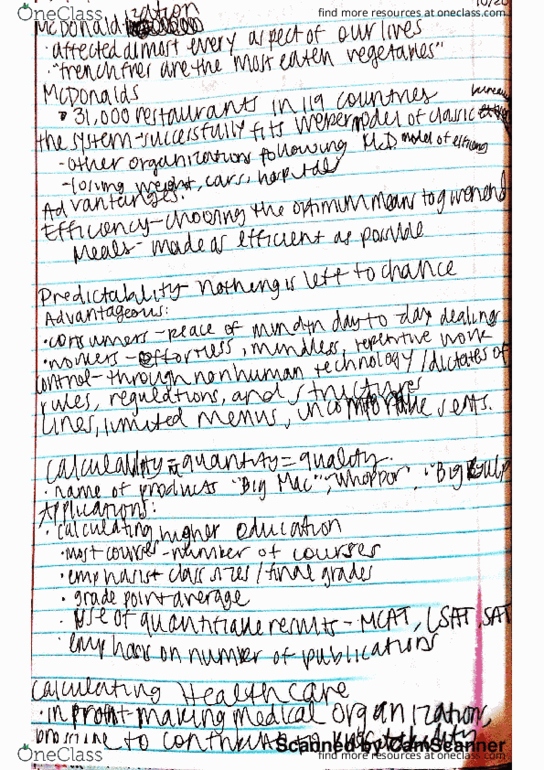 OneClass
find more resources at oneclass.com
McDonaldization
· affected almost every aspect of our lives
· "french fries are the "most eaten vegetables"
McDonalds
· 31,000 restaurants in 119 countries
the system-successfully fits Weber model of classic bureau
- other organizations following McD model of efficiency
- losing weight, cars, hospital
Advantages:
Efficiency-choosing the optimum means to given end
Meals- made as efficient as possible
Predictability- nothing is left to chance
Advantageous:
· consumers - peace of mind in day to day dealing
· workers - effortless, mindless, repetitive work
control- through nonhuman technology / dictates of
rules, regulations, and structures
lines, limited menus, uncomfortable seats.
Calculability = quantity = quality.
· name of products "Big Mac", "Whopper", "Big Gulp
Applications:
· calculating higher education
· most courses - number of courses
· emphasis class sizes / final grades
· grade point average
· use of quantifiable results - MCAT, LSAT, SAT
· emphasis on number of publications
Calculating Healthcare
· in profit-making medical organization,
to contribute to
Scanned by CamScanner
OneClass
find more resources at oneclass.com